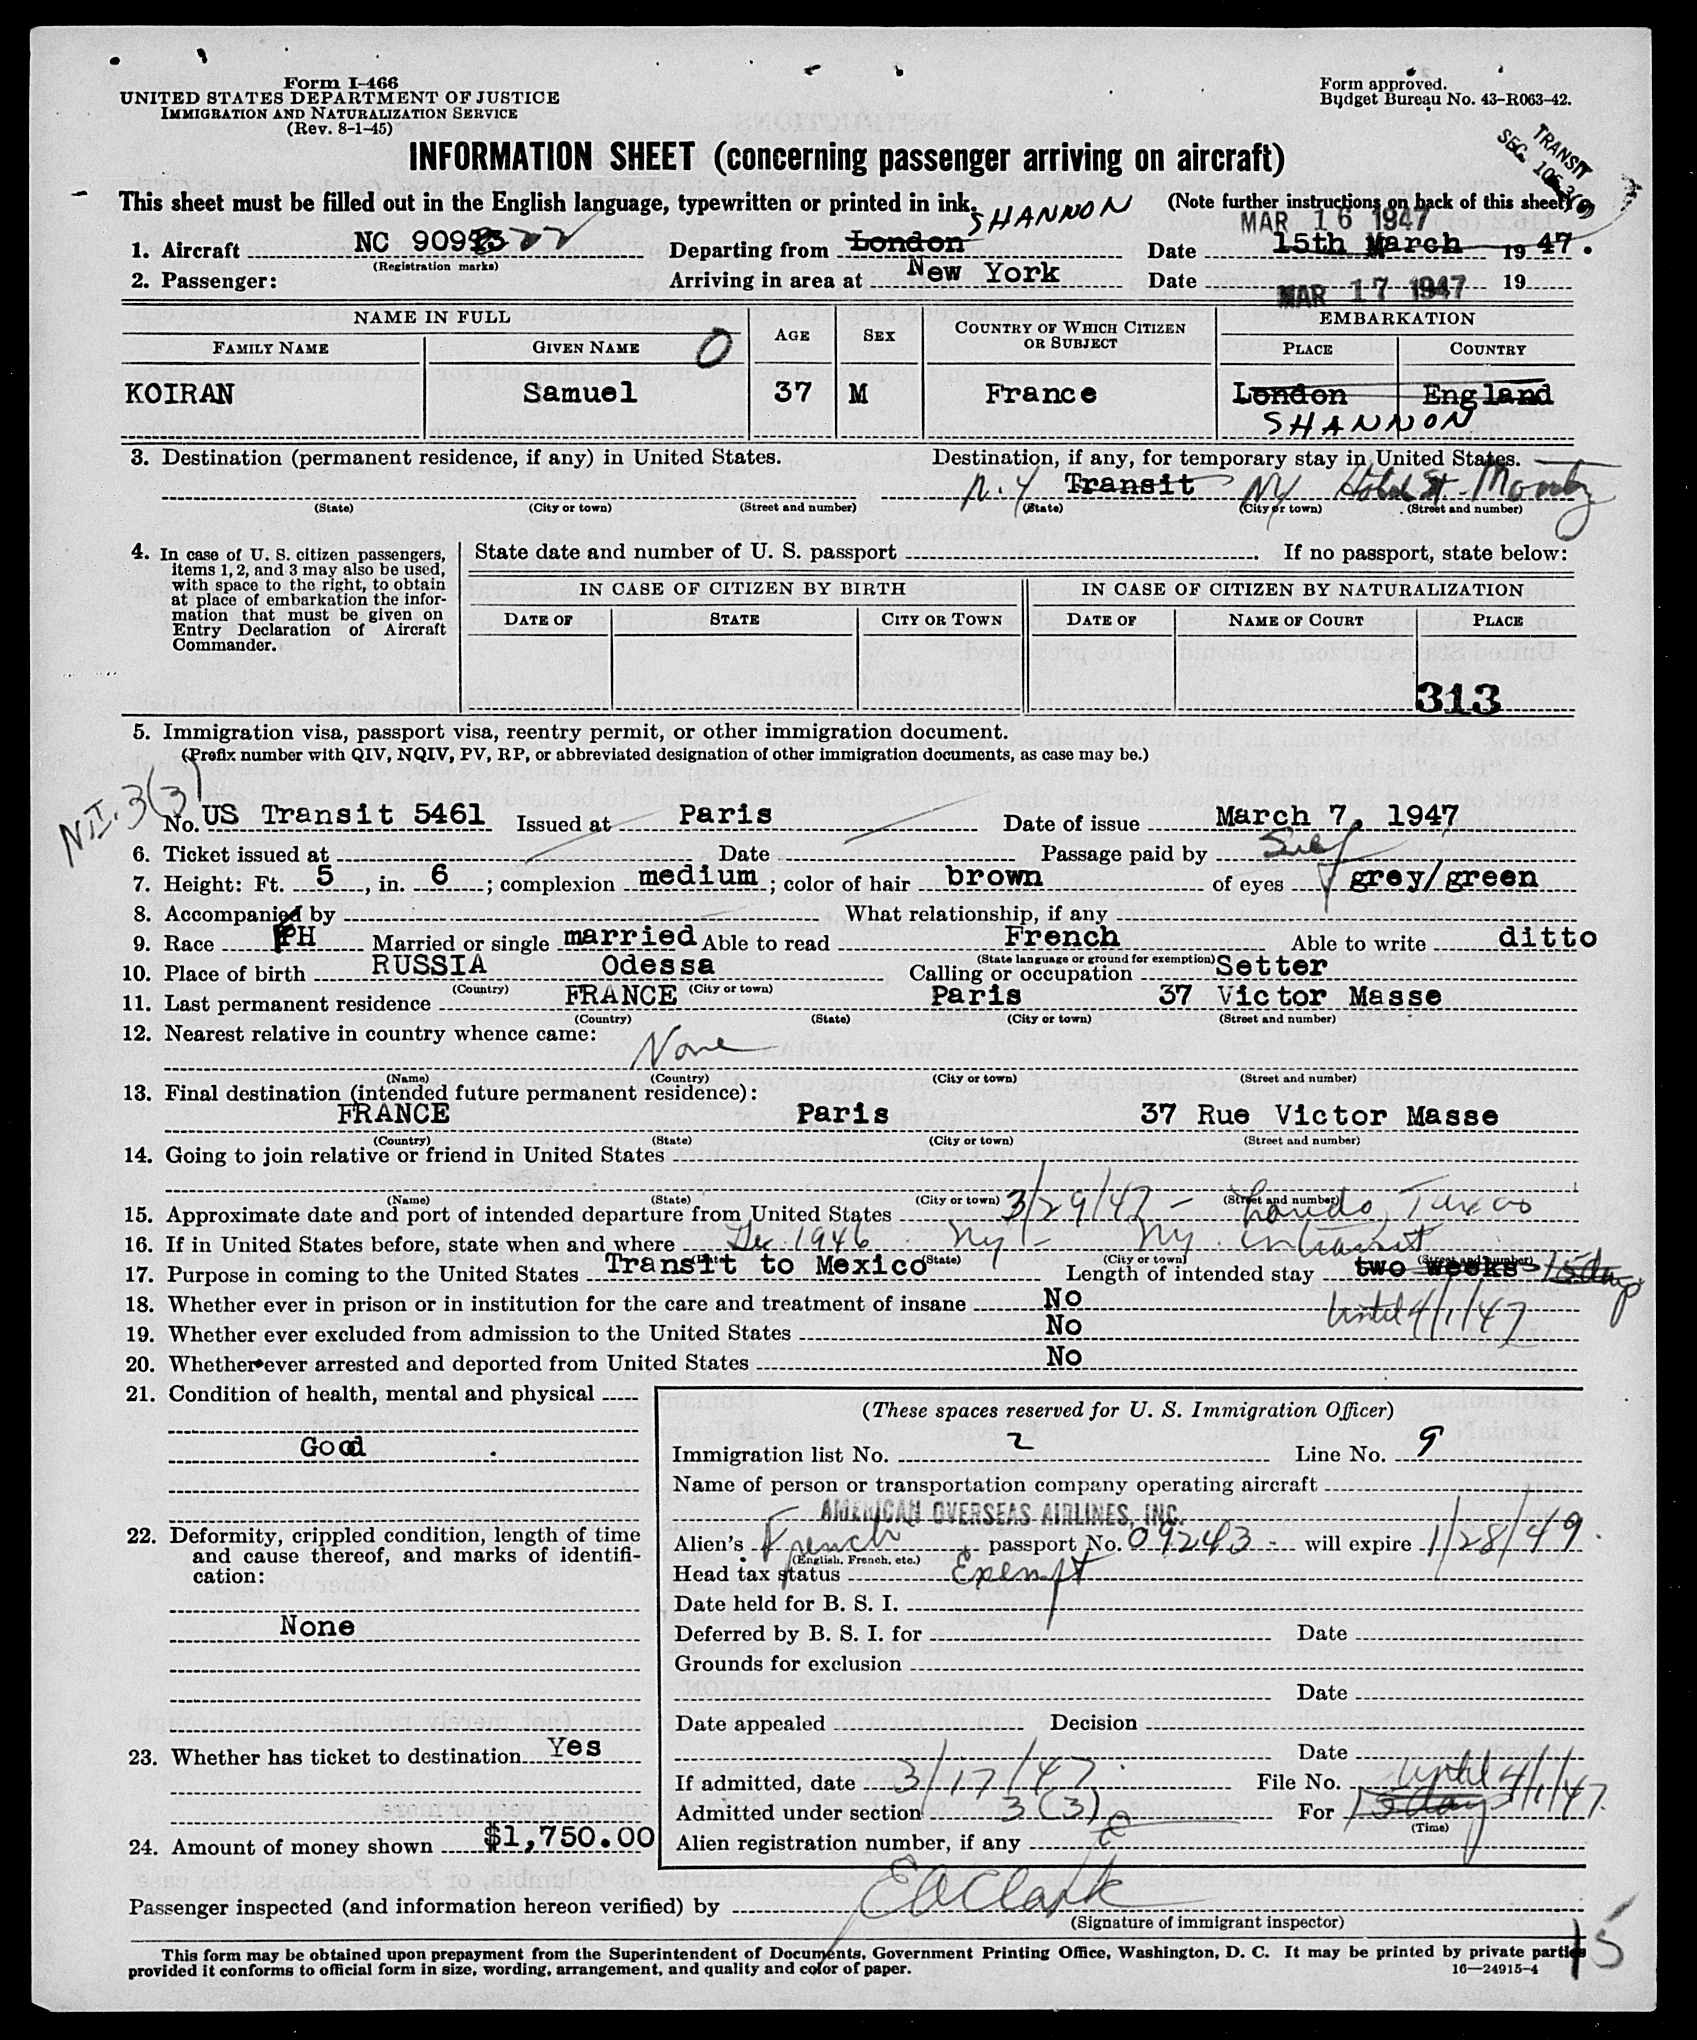 Form I-466
UNITED STATES DEPARTMENT OF JUSTICE
IMMIGRATION AND NATURALIZATION SERVICE
(Rev. 8-1-45)
Form approved.
Budget Bureau No. 43-R063-42.
TRANSIT
SEC.
INFORMATION SHEET (concerning passenger arriving on aircraft)
This sheet must be filled out in the English language, typewritten or printed in ink. (Note further instructions on back of this sheet)
SHANNON
MAR 16 1947
1. Aircraft NC 909 22 Departing from London Date 15th March 1947.
(Registration marks)
2. Passenger: Arriving in area at New York Date MAR 17 1947 19
NAME IN FULL AGE SEX COUNTRY OF WHICH CITIZEN OR SUBJECT EMBARKATION
FAMILY NAME GIVEN NAME O PLACE COUNTRY
KOIRAN Samuel 37 M France London England
SHANNON
3. Destination (permanent residence, if any) in United States. Destination, if any, for temporary stay in United States.
N.Y Transit NY Hotel St. Mority
(State) (City or town) (Street and number) (State) (City or town) (Street and number)
4. In case of U. S. citizen passengers, items 1, 2, and 3 may also be used, with space to the right, to obtain at place of embarkation the information that must be given on Entry Declaration of Aircraft Commander.
State date and number of U. S. passport If no passport, state below:
IN CASE OF CITIZEN BY BIRTH IN CASE OF CITIZEN BY NATURALIZATION
DATE OF STATE CITY OR TOWN DATE OF NAME OF COURT PLACE
313
5. Immigration visa, passport visa, reentry permit, or other immigration document.
(Prefix number with QIV, NQIV, PV, RP, or abbreviated designation of other immigration documents, as case may be.)
N.I. 3(3)
No. US Transit 5461 Issued at Paris Date of issue March 7, 1947
6. Ticket issued at Date Passage paid by Self
7. Height: Ft. 5, in. 6; complexion medium; color of hair brown of eyes grey/green
8. Accompanied by What relationship, if any
9. Race FH Married or single married Able to read French Able to write ditto
(State language or ground for exemption)
10. Place of birth RUSSIA Odessa Calling or occupation Setter
(Country) (City or town)
11. Last permanent residence FRANCE Paris 37 Victor Masse
(Country) (State) (City or town) (Street and number)
12. Nearest relative in country whence came:
None
(Name) (Country) (City or town) (Street and number)
13. Final destination (intended future permanent residence):
FRANCE Paris 37 Rue Victor Masse
(Country) (State) (City or town) (Street and number)
14. Going to join relative or friend in United States
(Name) (State) (City or town) (Street and number)
15. Approximate date and port of intended departure from United States 3/29/47 - Laredo, Texas
16. If in United States before, state when and where Dec. 1946 - NY - NY. intransit
(Date) (State) (City or town) (Street and number)
17. Purpose in coming to the United States Transit to Mexico Length of intended stay two weeks - 15 days
18. Whether ever in prison or in institution for the care and treatment of insane No until 4/1/47
19. Whether ever excluded from admission to the United States No
20. Whether ever arrested and deported from United States No
21. Condition of health, mental and physical
Good
22. Deformity, crippled condition, length of time and cause thereof, and marks of identification:
None
23. Whether has ticket to destination Yes
24. Amount of money shown $1,750.00
(These spaces reserved for U. S. Immigration Officer)
Immigration list No. 2 Line No. 9
Name of person or transportation company operating aircraft
AMERICAN OVERSEAS AIRLINES, INC.
Alien's French passport No. 09243 - will expire 1/28/49.
(English, French, etc.)
Head tax status Exempt
Date held for B. S. I.
Deferred by B. S. I. for Date
Grounds for exclusion
Date
Date appealed Decision
Date
If admitted, date 3/17/47. File No. until 4/1/47
Admitted under section 3(3) For 15 days 4/1/47.
(Time)
Alien registration number, if any
Passenger inspected (and information hereon verified) by EAClark
(Signature of immigrant inspector)
This form may be obtained upon prepayment from the Superintendent of Documents, Government Printing Office, Washington, D. C. It may be printed by private parties
provided it conforms to official form in size, wording, arrangement, and quality and color of paper. 16—24915-4
15